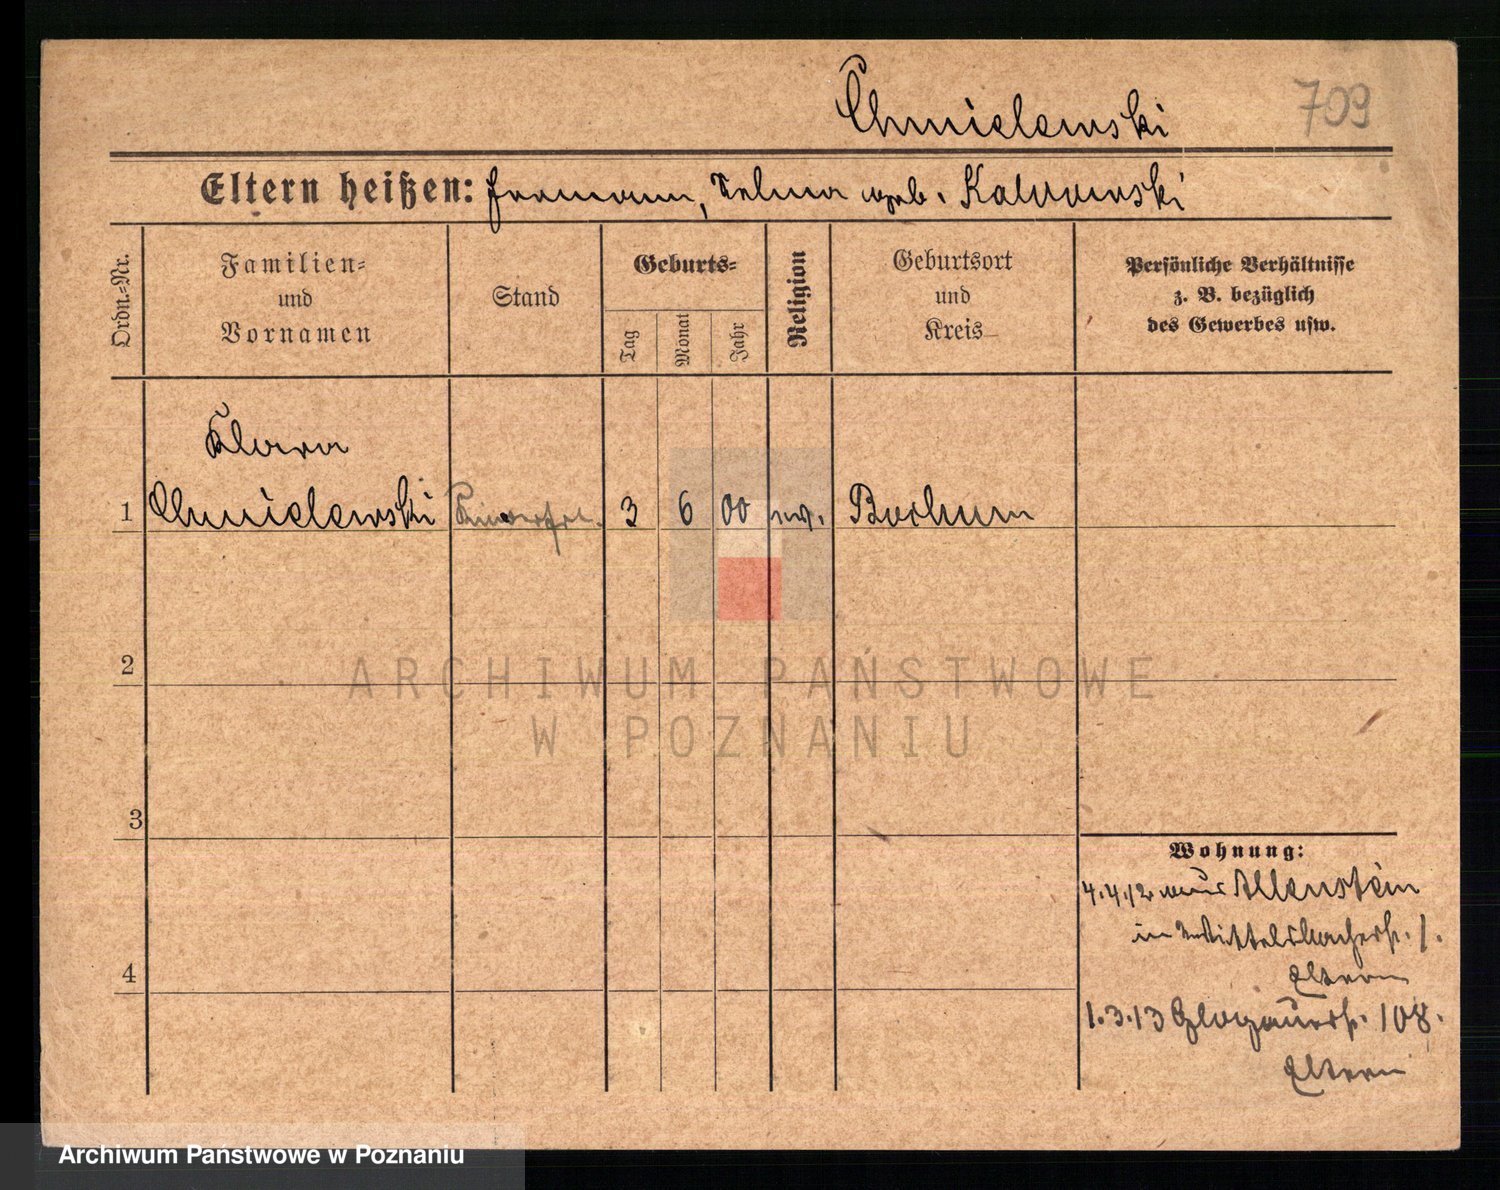 Chmielewski
709
Eltern heißen: Hermann, Selma geb.
Ordn.-Nr.
Familien-
und
Vornamen
Stand
Geburts-
Tag
Monat
Jahr
Religion
Geburtsort
und
Kreis
Persönliche Verhältnisse
z. B. bezüglich
des Gewerbes usw.
Klara
1 Chmielewski 3 6 00 ev. Bochum
2
ARCHIWUM PAŃSTWOWE
W POZNANIU
3
Wohnung:
4.4.12 aus Allenstein
in Wittelsbacherstr. 1.
4
Eltern
1.3.13 Glogauerstr. 108.
Eltern
Archiwum Państwowe w Poznaniu